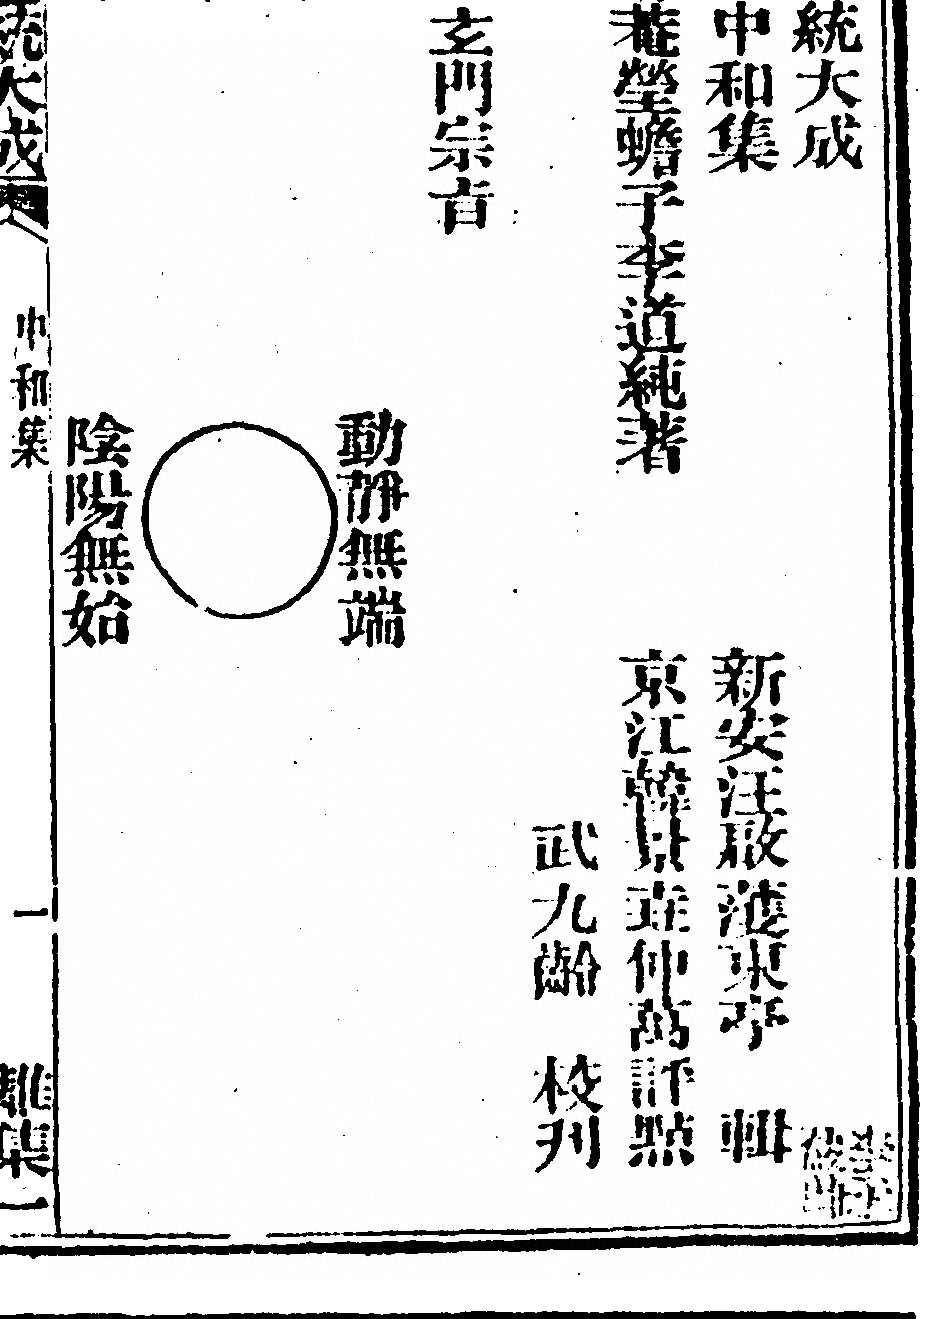 統大成
中和集
新安汪啟濩東亭 輯
菴瑩蟾子李道純著
京江韓景垚仲萬評點
武九齡 校刋
玄門宗旨
動靜無端
陰陽無始
統大成
中和集
一
離集一